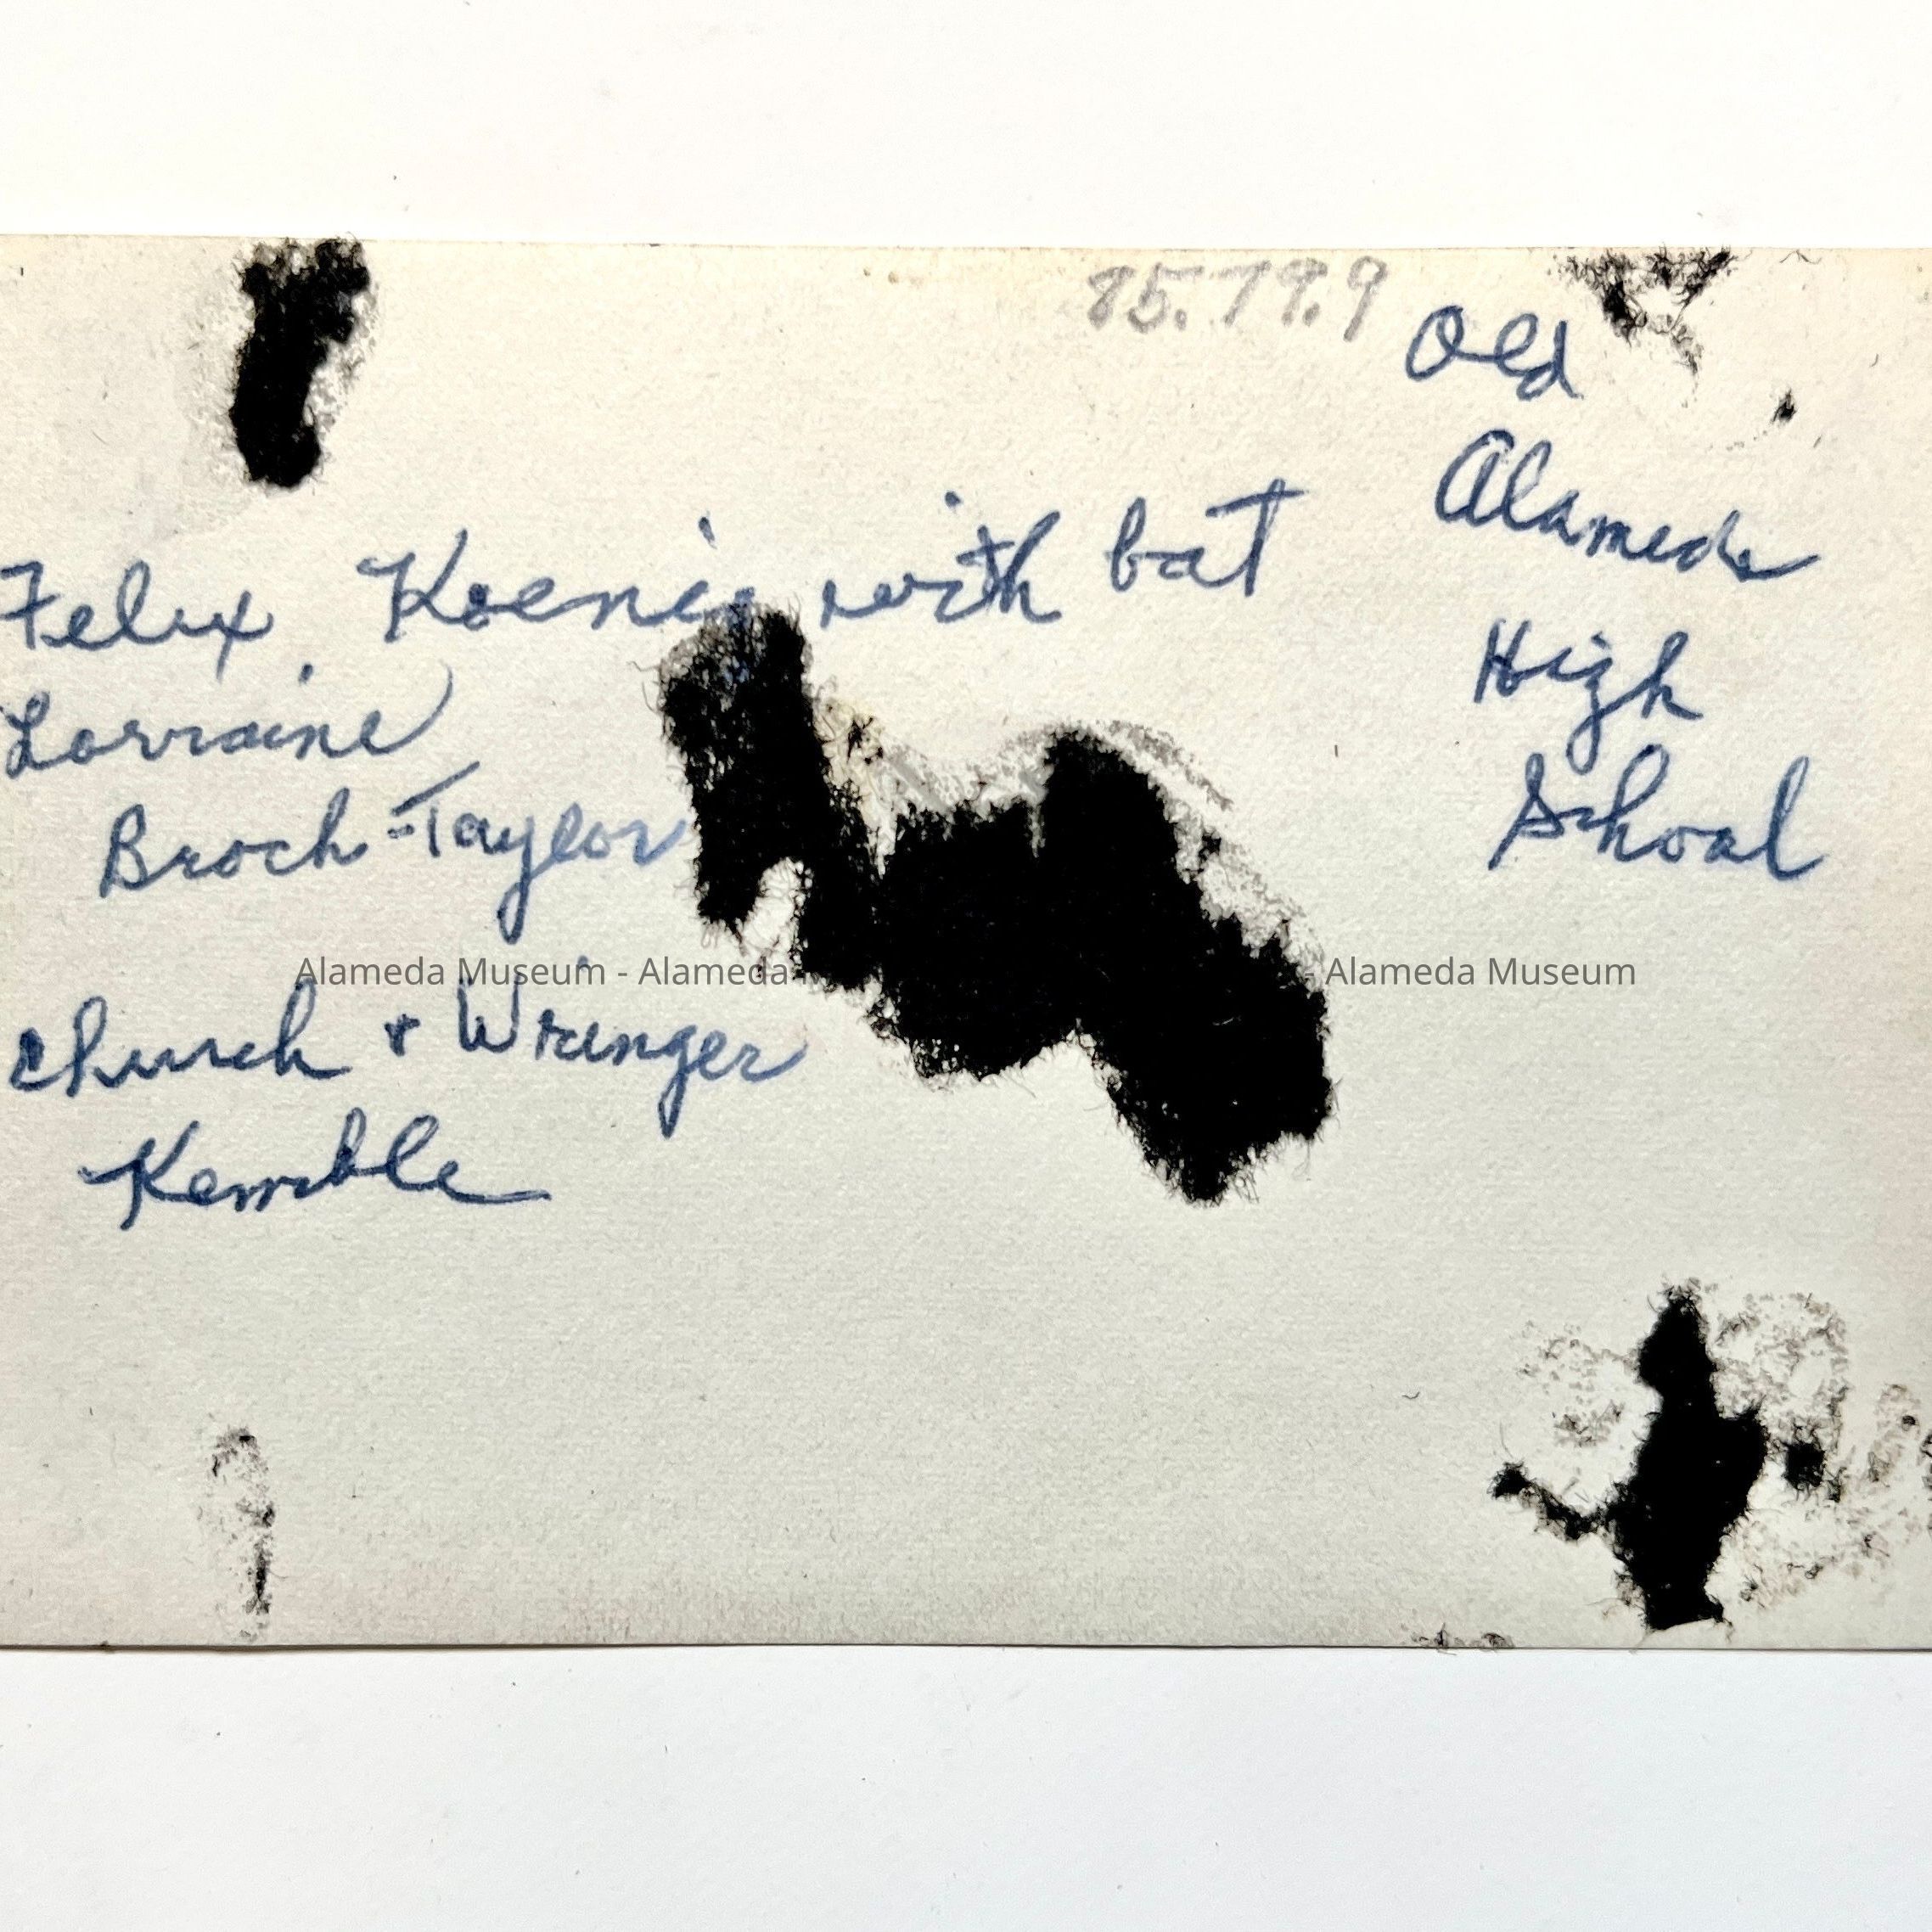 85.79.9
Old
Alameda
High
School
Felix Koenig with bat
Lorraine
Broch-Taylor
Alameda Museum - Alameda - Alameda Museum
Church + Wringer
Kemble